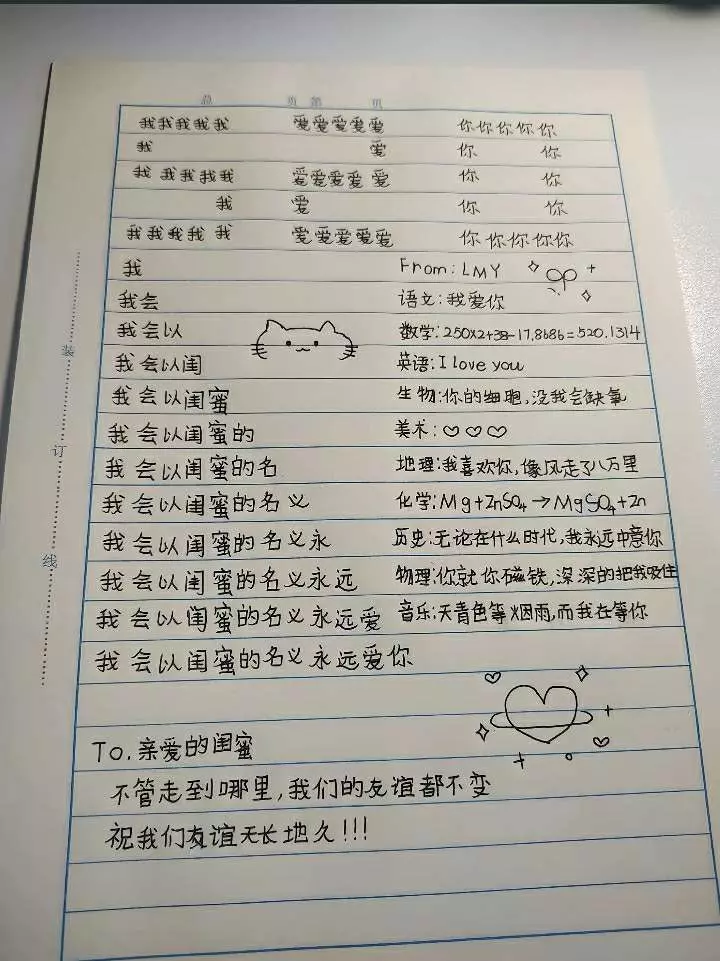 总 页 第 页
我我我我我 爱爱爱爱爱 你你你你你
我 爱 你 你
我我我我我 爱爱爱爱爱 你 你
我 爱 你 你
我我我我我 爱爱爱爱爱 你你你你你
我
我会
我会以
我会以闺
我会以闺蜜
我会以闺蜜的
我会以闺蜜的名
我会以闺蜜的名义
我会以闺蜜的名义永
我会以闺蜜的名义永远
我会以闺蜜的名义永远爱
我会以闺蜜的名义永远爱你
From: LMY
语文:我爱你
数学:250X2+38-17.8686=520.1314
英语:I love you
生物:你的细胞,没我会缺氧
美术:♡♡♡
地理:我喜欢你,像风走了八万里
化学:Mg+ZnSO₄→MgSO₄+Zn
历史:无论在什么时代,我永远中意你
物理:你就你磁铁,深深的把我吸住
音乐:天青色等烟雨,而我在等你
To.亲爱的闺蜜
不管走到哪里,我们的友谊都不变
祝我们友谊天长地久!!!
装
订
线